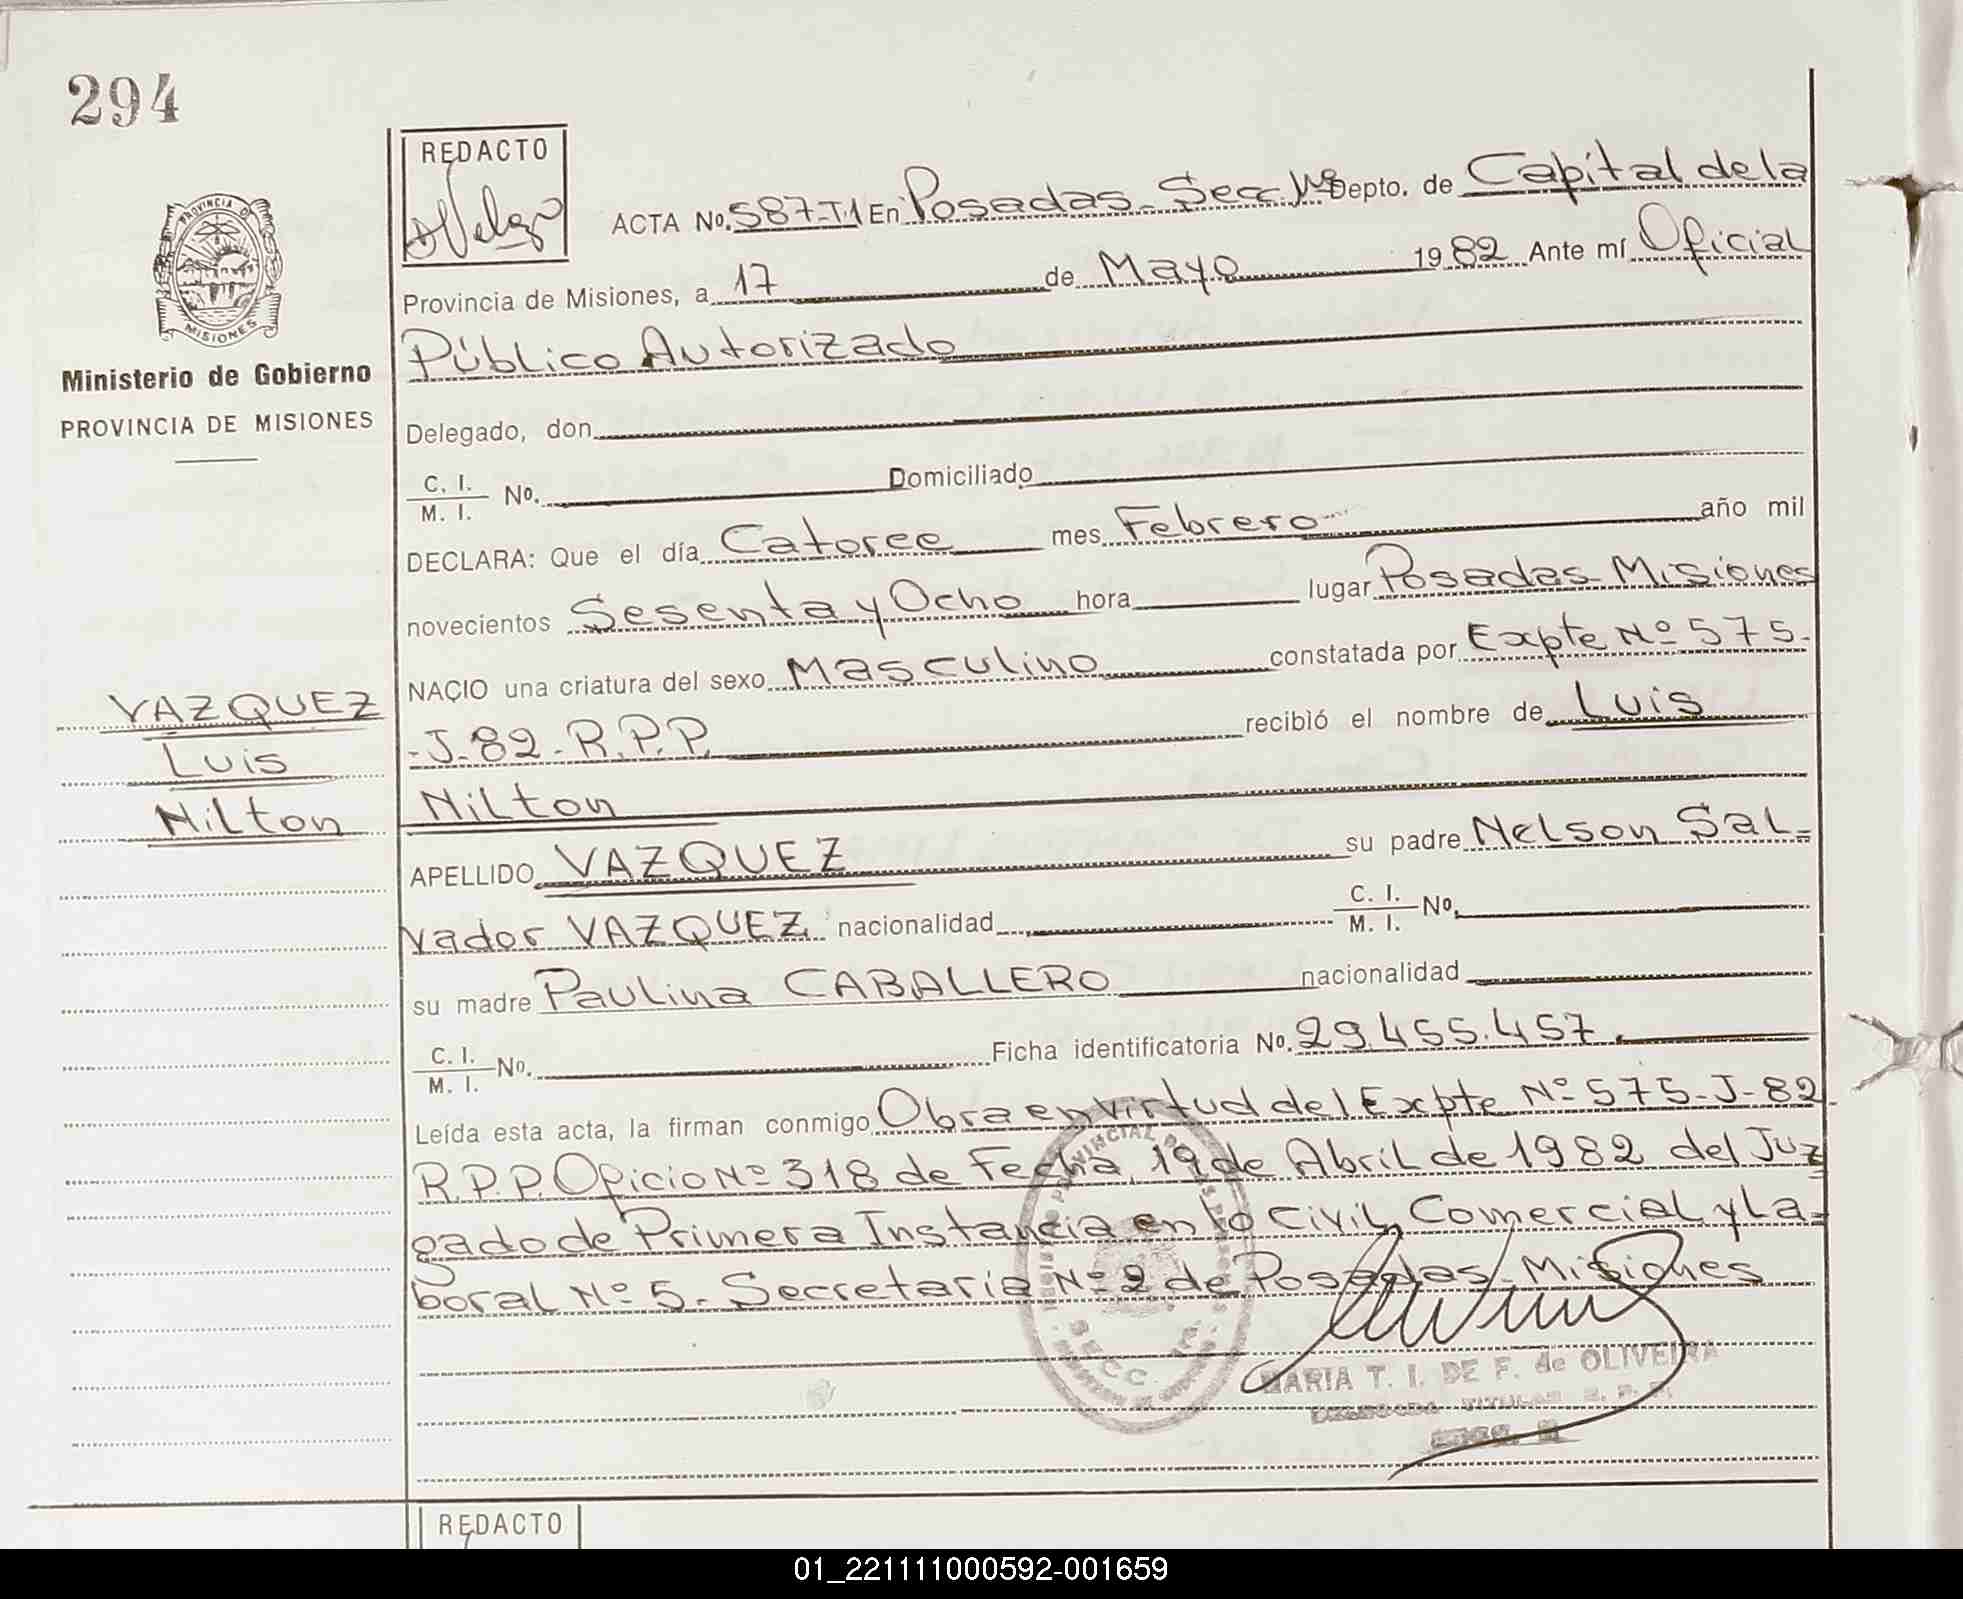 294
REDACTO
PROVINCIA DE
MISIONES
Ministerio de Gobierno
PROVINCIA DE MISIONES
ACTA No. 587-T1 En Posadas - Secc. Depto. de Capital de la
Provincia de Misiones, a 17 de Mayo 1982 Ante mí Oficial
Público Autorizado
Delegado, don
C. I.
M. I. No. Domiciliado
DECLARA: Que el día Catorce mes Febrero año mil
novecientos Sesenta y Ocho hora lugar Posadas - Misiones
NACIO una criatura del sexo Masculino constatada por Expte Nº 575-
-J-82-R.P.P. recibìó el nombre de Luis
Nilton
VAZQUEZ
Luis
Nilton
APELLIDO VAZQUEZ su padre Nelson Sal=
vador VAZQUEZ nacionalidad C. I.
M. I. No.
su madre Paulina CABALLERO nacionalidad
C. I.
M. I. No. Ficha identificatoria No. 29.455.457.
Leída esta acta, la firman conmigo Obra en virtud del Expte Nº 575-J-82
R.P.P. Oficio Nº 318 de Fecha, 19 de Abril de 1982 del Juz
gado de Primera Instancia en lo Civil, Comercial y La-
boral Nº 5. Secretaria Nº 2 de Posadas - Misiones
SECC.
MARIA T. I. DE F. de OLIVEIRA
REDACTO
01_221111000592-001659